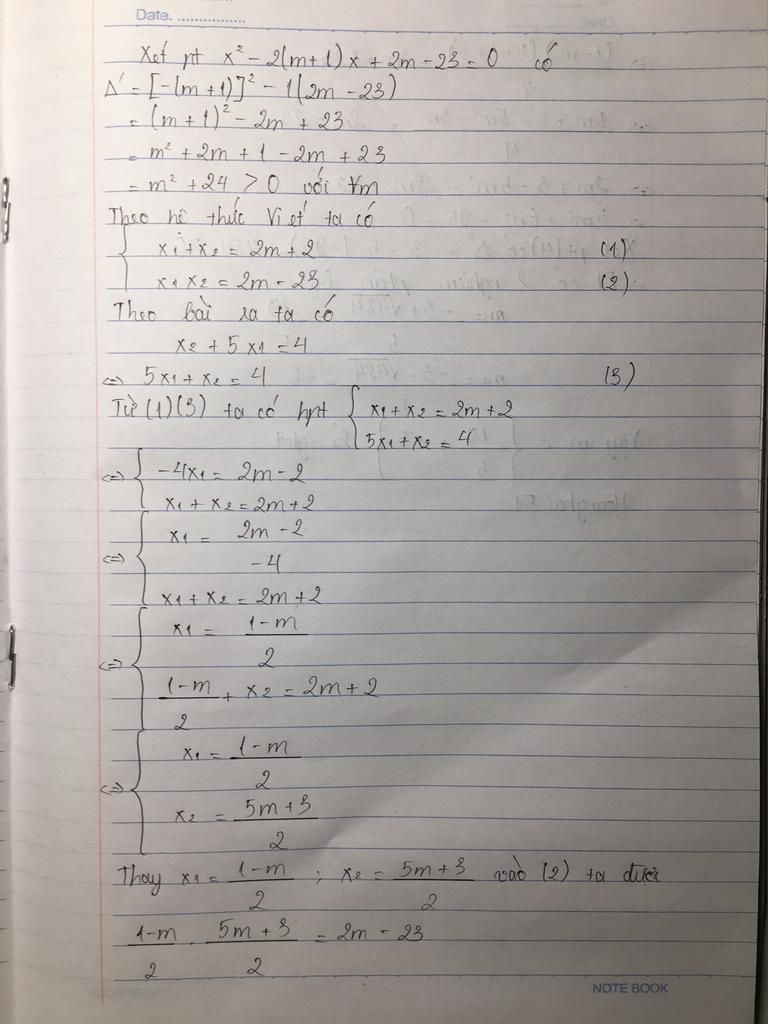 Date. ................
Xét pt x² - 2(m+1)x + 2m - 23 = 0 có
Δ' = [-(m+1)]² - 1(2m - 23)
= (m+1)² - 2m + 23
= m² + 2m + 1 - 2m + 23
= m² + 24 > 0 với ∀m
Theo hê thức Viet ta có
{ x₁ + x₂ = 2m + 2 (1)
x₁x₂ = 2m - 23 (2)
Theo bài ra ta có
x₂ + 5x₁ = 4
<=> 5x₁ + x₂ = 4 (3)
Từ (1)(3) ta có hpt { x₁ + x₂ = 2m + 2
5x₁ + x₂ = 4
<=> { -4x₁ = 2m - 2
x₁ + x₂ = 2m + 2
<=> { x₁ = (2m - 2)/-4
x₁ + x₂ = 2m + 2
<=> { x₁ = (1-m)/2
(1-m)/2 + x₂ = 2m + 2
<=> { x₁ = (1-m)/2
x₂ = (5m+3)/2
Thay x₁ = (1-m)/2 ; x₂ = (5m+3)/2 vào (2) ta được
(1-m)/2 . (5m+3)/2 = 2m - 23
NOTE BOOK